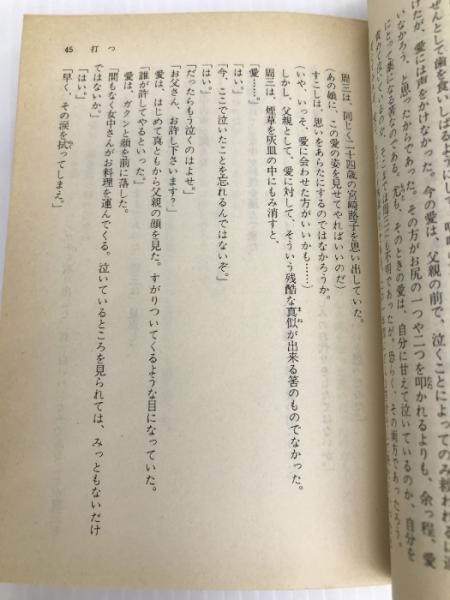 ぜんとして歯を食いしばるようにして
けたが、愛には声をかけなかった。今の愛は、父親の前で、泣くことによってのみ救われるに違
いなかろう、と思ったからであった。その方がお尻の一つや二つを叩かれるよりも、余っ程、愛
にとって薬になる筈なのである。尤も、そのときの愛は、自分に甘えて泣いているのか、自分を
不明であったが、恐らく、その両方であったろう。
周三は、同じく二十四歳の宮崎蕗子を思い出していた。
(あの娘に、この愛の姿を見せてやればいいのだ)
すこしは、思いをあらたにするのではなかろうか。
(いや、いっそ、愛に会わせた方がいいかも……)
しかし、父親として、愛に対して、そういう残酷な真似が出来る筈のものでなかった。
周三は、煙草を灰皿の中にもみ消すと、
「愛……。」
「はい。」
「今、ここで泣いたことを忘れるんではないぞ。」
「はい。」
「だったらもう泣くのはよせ。」
「お父さん、お許し下さいます?」
愛は、はじめて真ともから父親の顔を見た。すがりついてくるような目になっていた。
「誰が許してやるといった。」
愛は、ガクンと顔を前に落した。
「間もなく女中さんがお料理を運んでくる。泣いているところを見られては、みっともないだけ
ではないか。」
「はい。」
「早く、その涙を拭ってしまえ。」
45 打つ